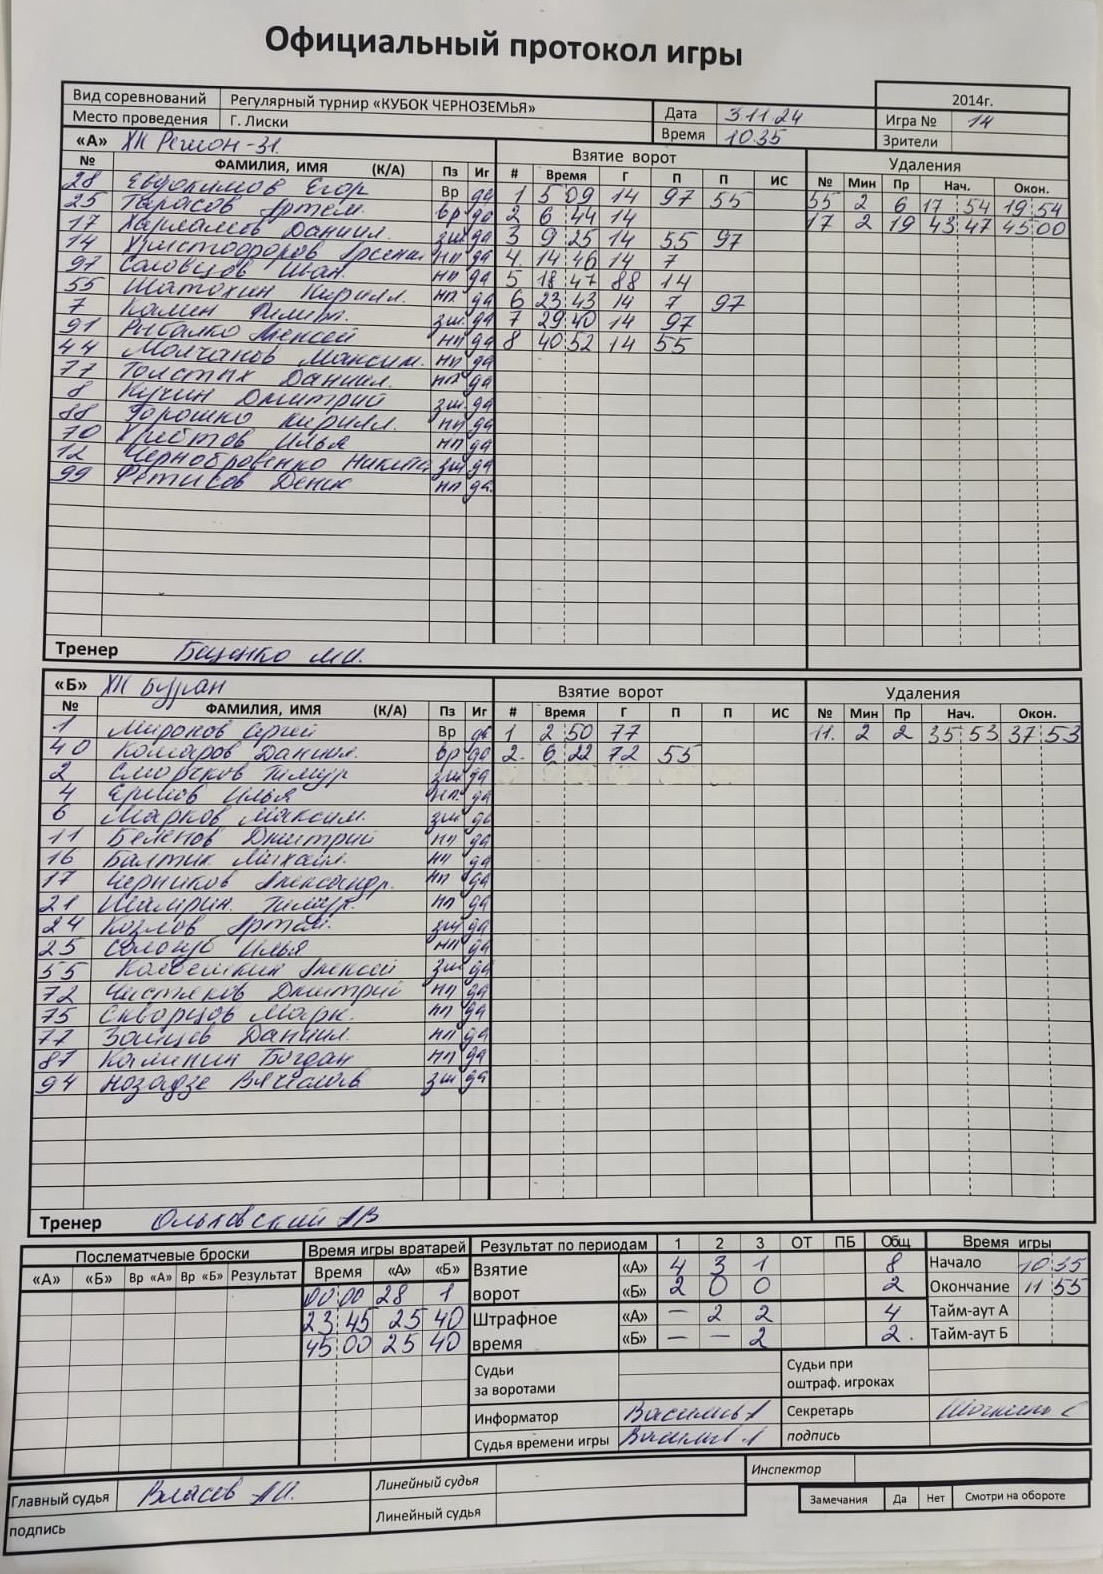 Официальный протокол игры
Вид соревнований Регулярный турнир «КУБОК ЧЕРНОЗЕМЬЯ» Дата 3.11.24 2014г.
Место проведения Г. Лиски Время 10.35 Игра № 14
Зрители
«А» ХК Регион-31 Взятие ворот Удаления
№ ФАМИЛИЯ, ИМЯ (К/А) Пз Иг # Время Г П П ИС № Мин Пр Нач. Окон.
28 Евдокимов Егор Вр да 1 5 09 14 97 55 55 2 6 17 54 19 54
25 Тарасов Артем вр да 2 6 44 14 17 2 19 43 47 45 00
17 Харламов Даниил зщ да 3 9 25 14 55 97
14 Христофоров Арсений нп да 4 14 46 14 7
97 Соловцов Иван нп да 5 18 47 88 14
55 Шатохин Кирилл. нп да 6 23 43 14 7 97
7 Камен зщ да 7 29 40 14 97
91 Рыбалко Алексей нп да 8 40 52 14 55
44 Молчанов Максим. нп да
77 Толстых Даниил. нп да
8 Кучин Дмитрий зщ да
88 Горошко Кирилл. нп да
70 Христов Илья нп да
12 Чернобровенко Никита зщ да
99 Фетисов Денис нп да.
Тренер Баценко М.И.
«Б» ХК Буран Взятие ворот Удаления
№ ФАМИЛИЯ, ИМЯ (К/А) Пз Иг # Время Г П П ИС № Мин Пр Нач. Окон.
1 Миронов Вр да 1 2 50 77 11. 2 2 35 53 37 53
40 Комаров Даниил. вр да 2. 6 22 72 55
2 Сморчков Тимур зщ да
4 Ершов Илья нп. да
6 Марков Максим. зщ да
11 Беленов Дмитрий нп да
16 Балтик Михаил. нп да
17 Черников Александр. нп да
21 Шамрин Тимур. нп да
24 Козлов Артем. зщ да
25 Сологуб Илья нп да
55 Алексей зщ да
72 Чистяков Дмитрий нп да
75 Скворцов Марк. нп да
77 Зайцев Даниил. нп да
87 Калинин Богдан нп да
94 Нозадзе Вячеслав зщ да
Тренер Ольховский АВ
Послематчевые броски Время игры вратарей Результат по периодам 1 2 3 ОТ ПБ Общ Время игры
«А» «Б» Вр «А» Вр «Б» Результат Время «А» «Б» Взятие ворот «А» 4 3 1 8 Начало 10 35
00 00 28 1 «Б» 2 0 0 2 Окончание 11 55
23 45 25 40 Штрафное время «А» – 2 2 4 Тайм-аут А
45 00 25 40 «Б» – – 2 2. Тайм-аут Б
Судьи за воротами Судьи при оштраф. игроках
Информатор Секретарь
Судья времени игры подпись
Главный судья Власев А.И. Линейный судья Инспектор
подпись Линейный судья Замечания Да Нет Смотри на обороте